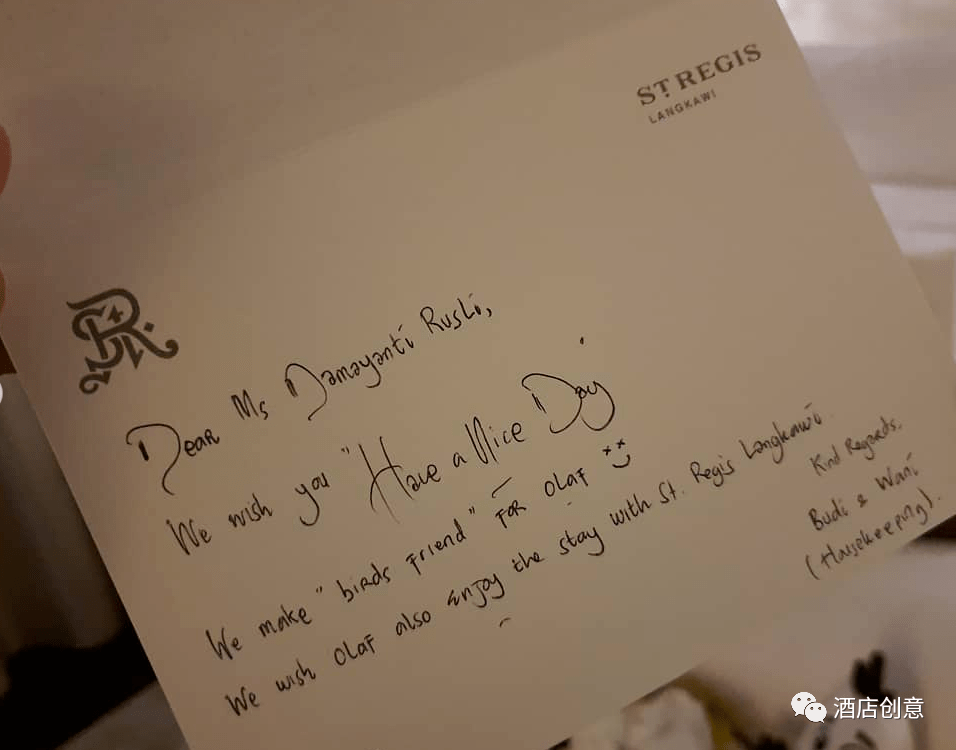 ST REGIS
LANGKAWI
Dear Ms Damayanti Rusli,
We wish you "Have a Nice Day"
We make "birds friend" for Olaf
We wish Olaf also enjoy the stay with St. Regis Langkawi.
Kind Regards.
Budi & Wani
(Housekeeping).
酒店创意